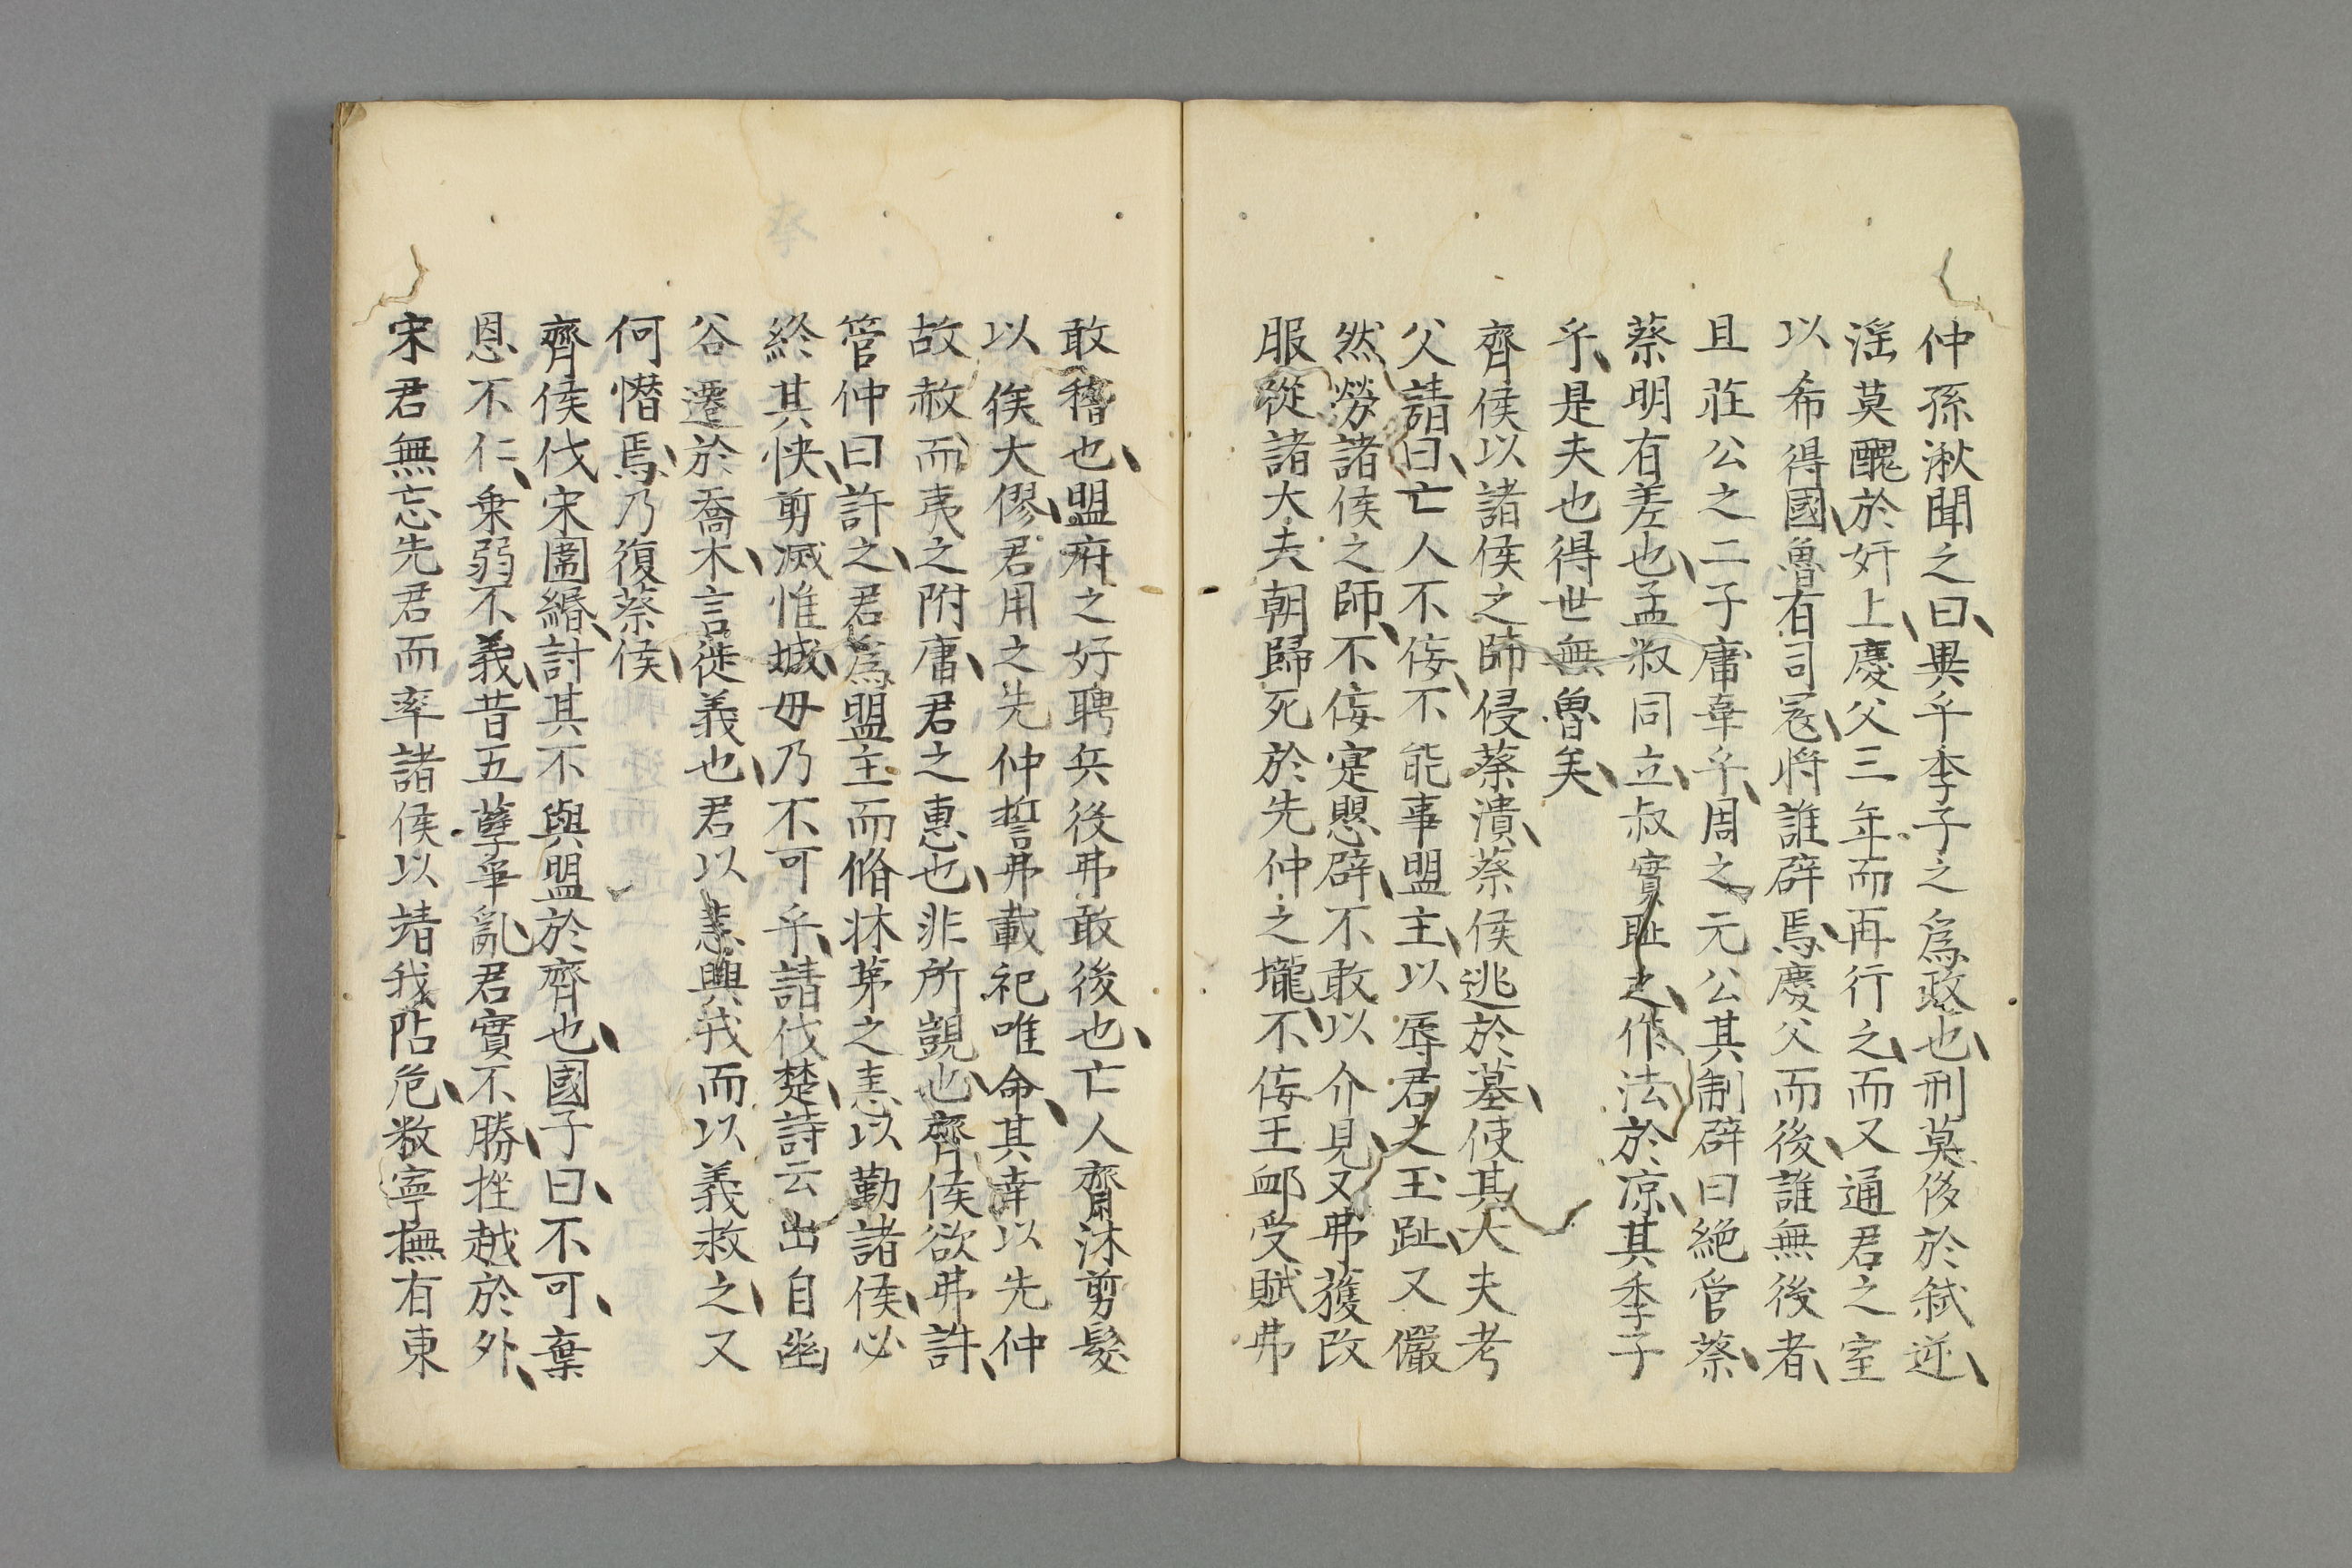 仲孫湫聞之曰異乎季子之爲政也刑莫後於弑逆
淫莫醜於奸上慶父三年而再行之而又通君之室
以希得國魯有司冦將誰辟焉慶父而後誰無後者
且莊公之二子庸辜乎周之元公其制辟曰絶管蔡
蔡明有差也孟叔同立叔實耻之作法於凉其季子
乎是夫也得世無魯矣
齊侯以諸侯之師侵蔡蔡潰蔡侯逃於墓使其大夫考
父請曰亡人不侫不能事盟主以辱君之玉趾又儼
然勞諸侯之師不侫寔愳辟不敢以介見又弗獲改
服從諸大夫朝歸死於先仲之壠不侫王衈受賦弗
敢稽也盟府之好聘兵後弗敢後也亡人齋沐剪髮
以俟大僇君用之先仲誓弗載祀唯命其幸以先仲
故赦而夷之附庸君之惠也非所覬也齊侯欲弗許
管仲曰許之君爲盟主而脩牀笫之恚以勤諸侯必
終其怏剪滅惟城毋乃不可乎請伐楚詩云出自幽
谷遷於喬木言徙義也君以恚興戎而以義救之又
何憯焉乃復蔡侯
齊侯伐宋圍緡討其不與盟於齊也國子曰不可棄
恩不仁乗弱不義昔五孽爭亂君實不勝挫越於外
宋君無忘先君而率諸侯以靖我阽危敉寧撫有東